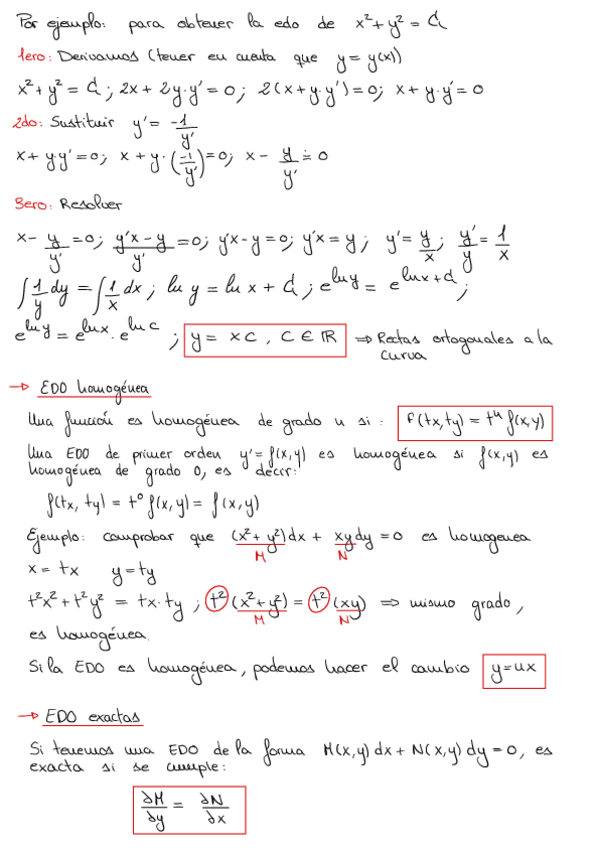 Por ejemplo: para obtener la edo de x² + y² = C
1ero: Derivamos (tener en cuenta que y = y(x))
x² + y² = C ; 2x + 2y·y' = 0 ; 2(x + y·y') = 0 ; x + y·y' = 0
2do: Sustituir y' = -1/y'
x + y·y' = 0 ; x + y·(-1/y') = 0 ; x - y/y' = 0
3ero: Resolver
x - y/y' = 0 ; (y'x - y)/y' = 0 ; y'x - y = 0 ; y'x = y ; y' = y/x ; y'/y = 1/x
∫ 1/y dy = ∫ 1/x dx ; ln y = ln x + C ; e^(ln y) = e^(ln x + C) ;
e^(ln y) = e^(ln x) · e^(ln C) ; y = xC , C ∈ ℝ ⇒ Rectas ortogonales a la
curva
→ EDO homogénea
Una función es homogénea de grado n si : f(tx,ty) = tⁿ f(x,y)
Una EDO de primer orden y' = f(x,y) es homogénea si f(x,y) es
homogénea de grado 0, es decir:
f(tx, ty) = t⁰ f(x,y) = f(x,y)
Ejemplo: comprobar que (x² + y²)dx + xydy = 0 es homogenea
M N
x = tx y = ty
t²x² + t²y² = tx·ty ; t²(x² + y²) = t²(xy) ⇒ mismo grado,
M N
es homogénea.
Si la EDO es homogénea, podemos hacer el cambio y = ux
→ EDO exactas
Si tenemos una EDO de la forma M(x,y)dx + N(x,y)dy = 0, es
exacta si se cumple:
∂M/∂y = ∂N/∂x